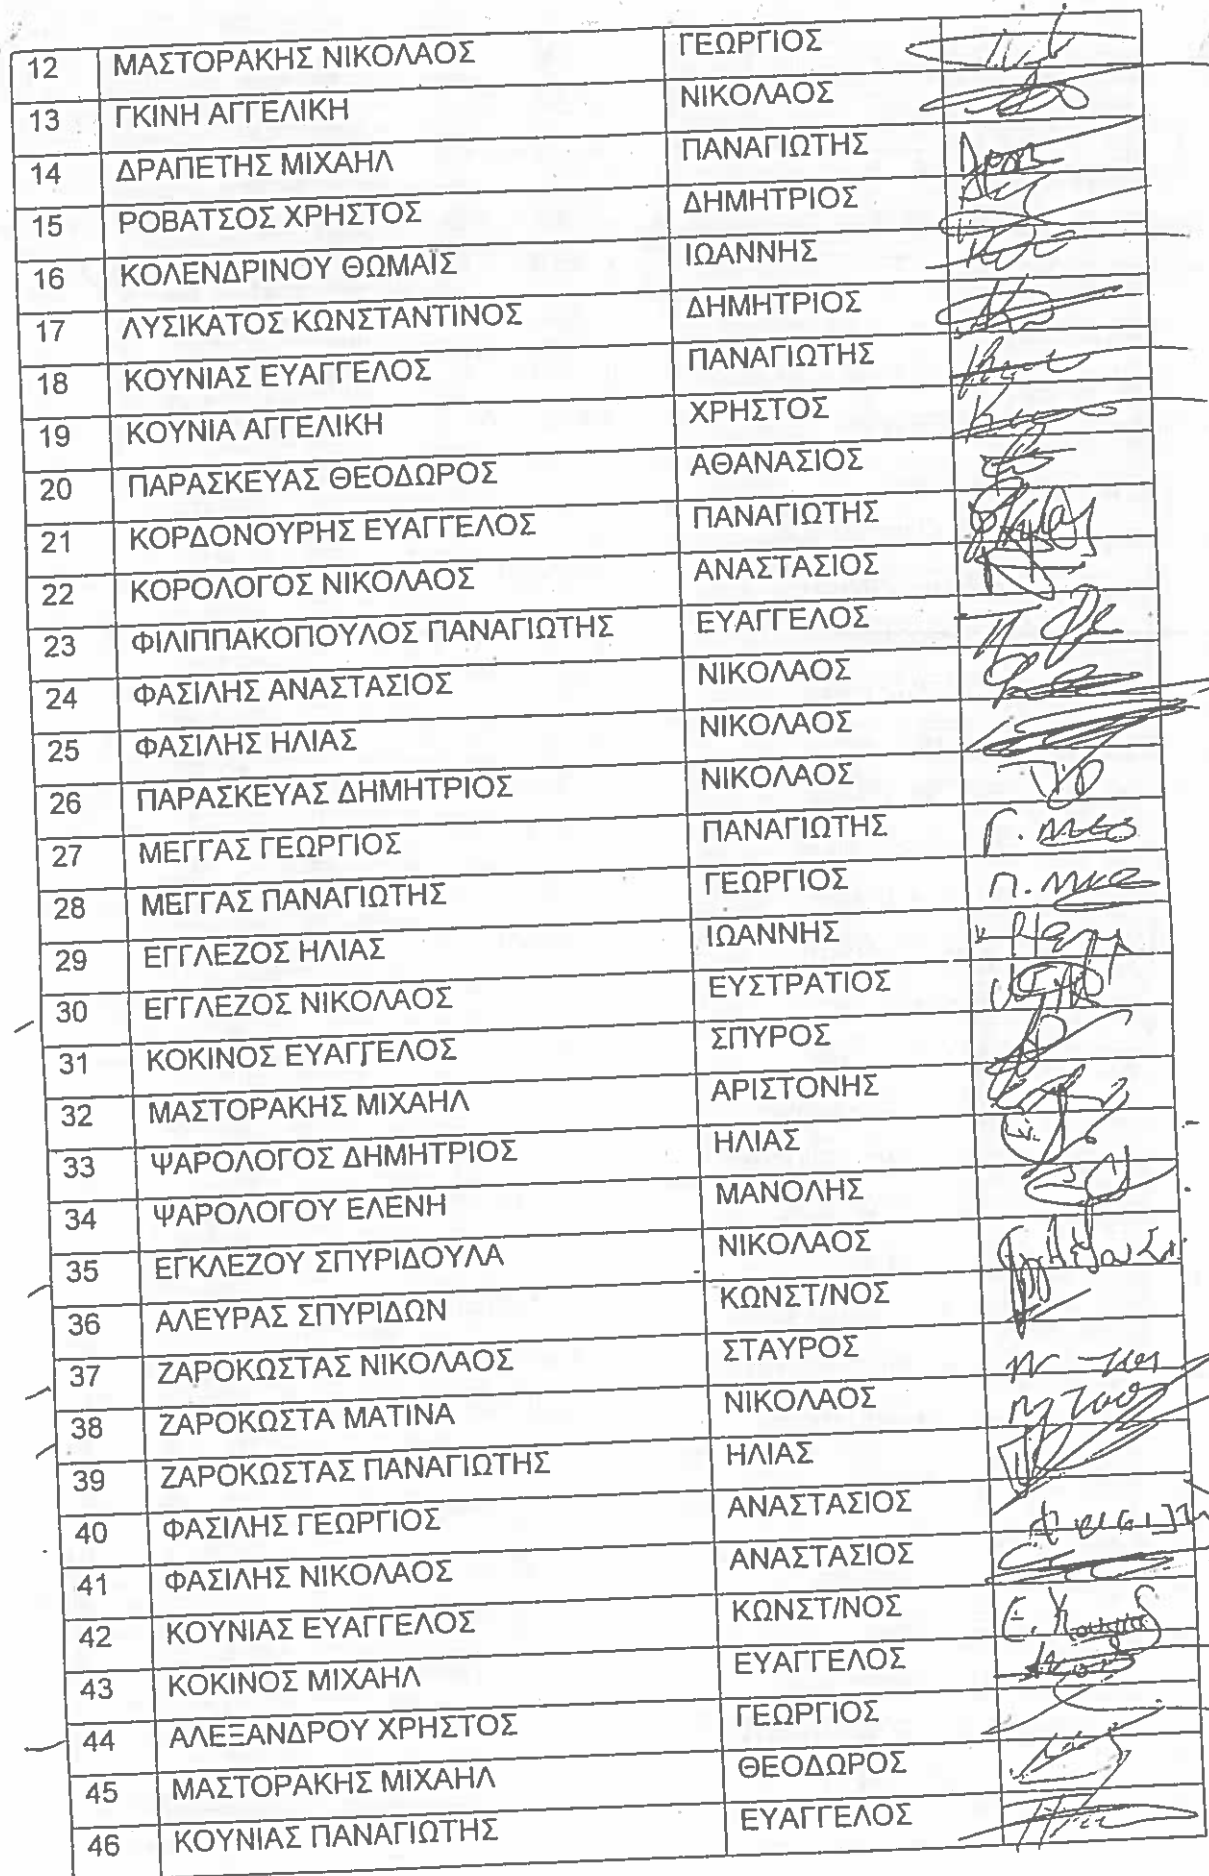 12 ΜΑΣΤΟΡΑΚΗΣ ΝΙΚΟΛΑΟΣ ΓΕΩΡΓΙΟΣ
13 ΓΚΙΝΗ ΑΓΓΕΛΙΚΗ ΝΙΚΟΛΑΟΣ
14 ΔΡΑΠΕΤΗΣ ΜΙΧΑΗΛ ΠΑΝΑΓΙΩΤΗΣ
15 ΡΟΒΑΤΣΟΣ ΧΡΗΣΤΟΣ ΔΗΜΗΤΡΙΟΣ
16 ΚΟΛΕΝΔΡΙΝΟΥ ΘΩΜΑΪΣ ΙΩΑΝΝΗΣ
17 ΛΥΣΙΚΑΤΟΣ ΚΩΝΣΤΑΝΤΙΝΟΣ ΔΗΜΗΤΡΙΟΣ
18 ΚΟΥΝΙΑΣ ΕΥΑΓΓΕΛΟΣ ΠΑΝΑΓΙΩΤΗΣ
19 ΚΟΥΝΙΑ ΑΓΓΕΛΙΚΗ ΧΡΗΣΤΟΣ
20 ΠΑΡΑΣΚΕΥΑΣ ΘΕΟΔΩΡΟΣ ΑΘΑΝΑΣΙΟΣ
21 ΚΟΡΔΟΝΟΥΡΗΣ ΕΥΑΓΓΕΛΟΣ ΠΑΝΑΓΙΩΤΗΣ
22 ΚΟΡΟΛΟΓΟΣ ΝΙΚΟΛΑΟΣ ΑΝΑΣΤΑΣΙΟΣ
23 ΦΙΛΙΠΠΑΚΟΠΟΥΛΟΣ ΠΑΝΑΓΙΩΤΗΣ ΕΥΑΓΓΕΛΟΣ
24 ΦΑΣΙΛΗΣ ΑΝΑΣΤΑΣΙΟΣ ΝΙΚΟΛΑΟΣ
25 ΦΑΣΙΛΗΣ ΗΛΙΑΣ ΝΙΚΟΛΑΟΣ
26 ΠΑΡΑΣΚΕΥΑΣ ΔΗΜΗΤΡΙΟΣ ΝΙΚΟΛΑΟΣ
27 ΜΕΓΓΑΣ ΓΕΩΡΓΙΟΣ ΠΑΝΑΓΙΩΤΗΣ
28 ΜΕΓΓΑΣ ΠΑΝΑΓΙΩΤΗΣ ΓΕΩΡΓΙΟΣ
29 ΕΓΓΛΕΖΟΣ ΗΛΙΑΣ ΙΩΑΝΝΗΣ
30 ΕΓΓΛΕΖΟΣ ΝΙΚΟΛΑΟΣ ΕΥΣΤΡΑΤΙΟΣ
31 ΚΟΚΙΝΟΣ ΕΥΑΓΓΕΛΟΣ ΣΠΥΡΟΣ
32 ΜΑΣΤΟΡΑΚΗΣ ΜΙΧΑΗΛ ΑΡΙΣΤΟΝΗΣ
33 ΨΑΡΟΛΟΓΟΣ ΔΗΜΗΤΡΙΟΣ ΗΛΙΑΣ
34 ΨΑΡΟΛΟΓΟΥ ΕΛΕΝΗ ΜΑΝΟΛΗΣ
35 ΕΓΚΛΕΖΟΥ ΣΠΥΡΙΔΟΥΛΑ ΝΙΚΟΛΑΟΣ
36 ΑΛΕΥΡΑΣ ΣΠΥΡΙΔΩΝ ΚΩΝΣΤ/ΝΟΣ
37 ΖΑΡΟΚΩΣΤΑΣ ΝΙΚΟΛΑΟΣ ΣΤΑΥΡΟΣ
38 ΖΑΡΟΚΩΣΤΑ ΜΑΤΙΝΑ ΝΙΚΟΛΑΟΣ
39 ΖΑΡΟΚΩΣΤΑΣ ΠΑΝΑΓΙΩΤΗΣ ΗΛΙΑΣ
40 ΦΑΣΙΛΗΣ ΓΕΩΡΓΙΟΣ ΑΝΑΣΤΑΣΙΟΣ
41 ΦΑΣΙΛΗΣ ΝΙΚΟΛΑΟΣ ΑΝΑΣΤΑΣΙΟΣ
42 ΚΟΥΝΙΑΣ ΕΥΑΓΓΕΛΟΣ ΚΩΝΣΤ/ΝΟΣ
43 ΚΟΚΙΝΟΣ ΜΙΧΑΗΛ ΕΥΑΓΓΕΛΟΣ
44 ΑΛΕΞΑΝΔΡΟΥ ΧΡΗΣΤΟΣ ΓΕΩΡΓΙΟΣ
45 ΜΑΣΤΟΡΑΚΗΣ ΜΙΧΑΗΛ ΘΕΟΔΩΡΟΣ
46 ΚΟΥΝΙΑΣ ΠΑΝΑΓΙΩΤΗΣ ΕΥΑΓΓΕΛΟΣ